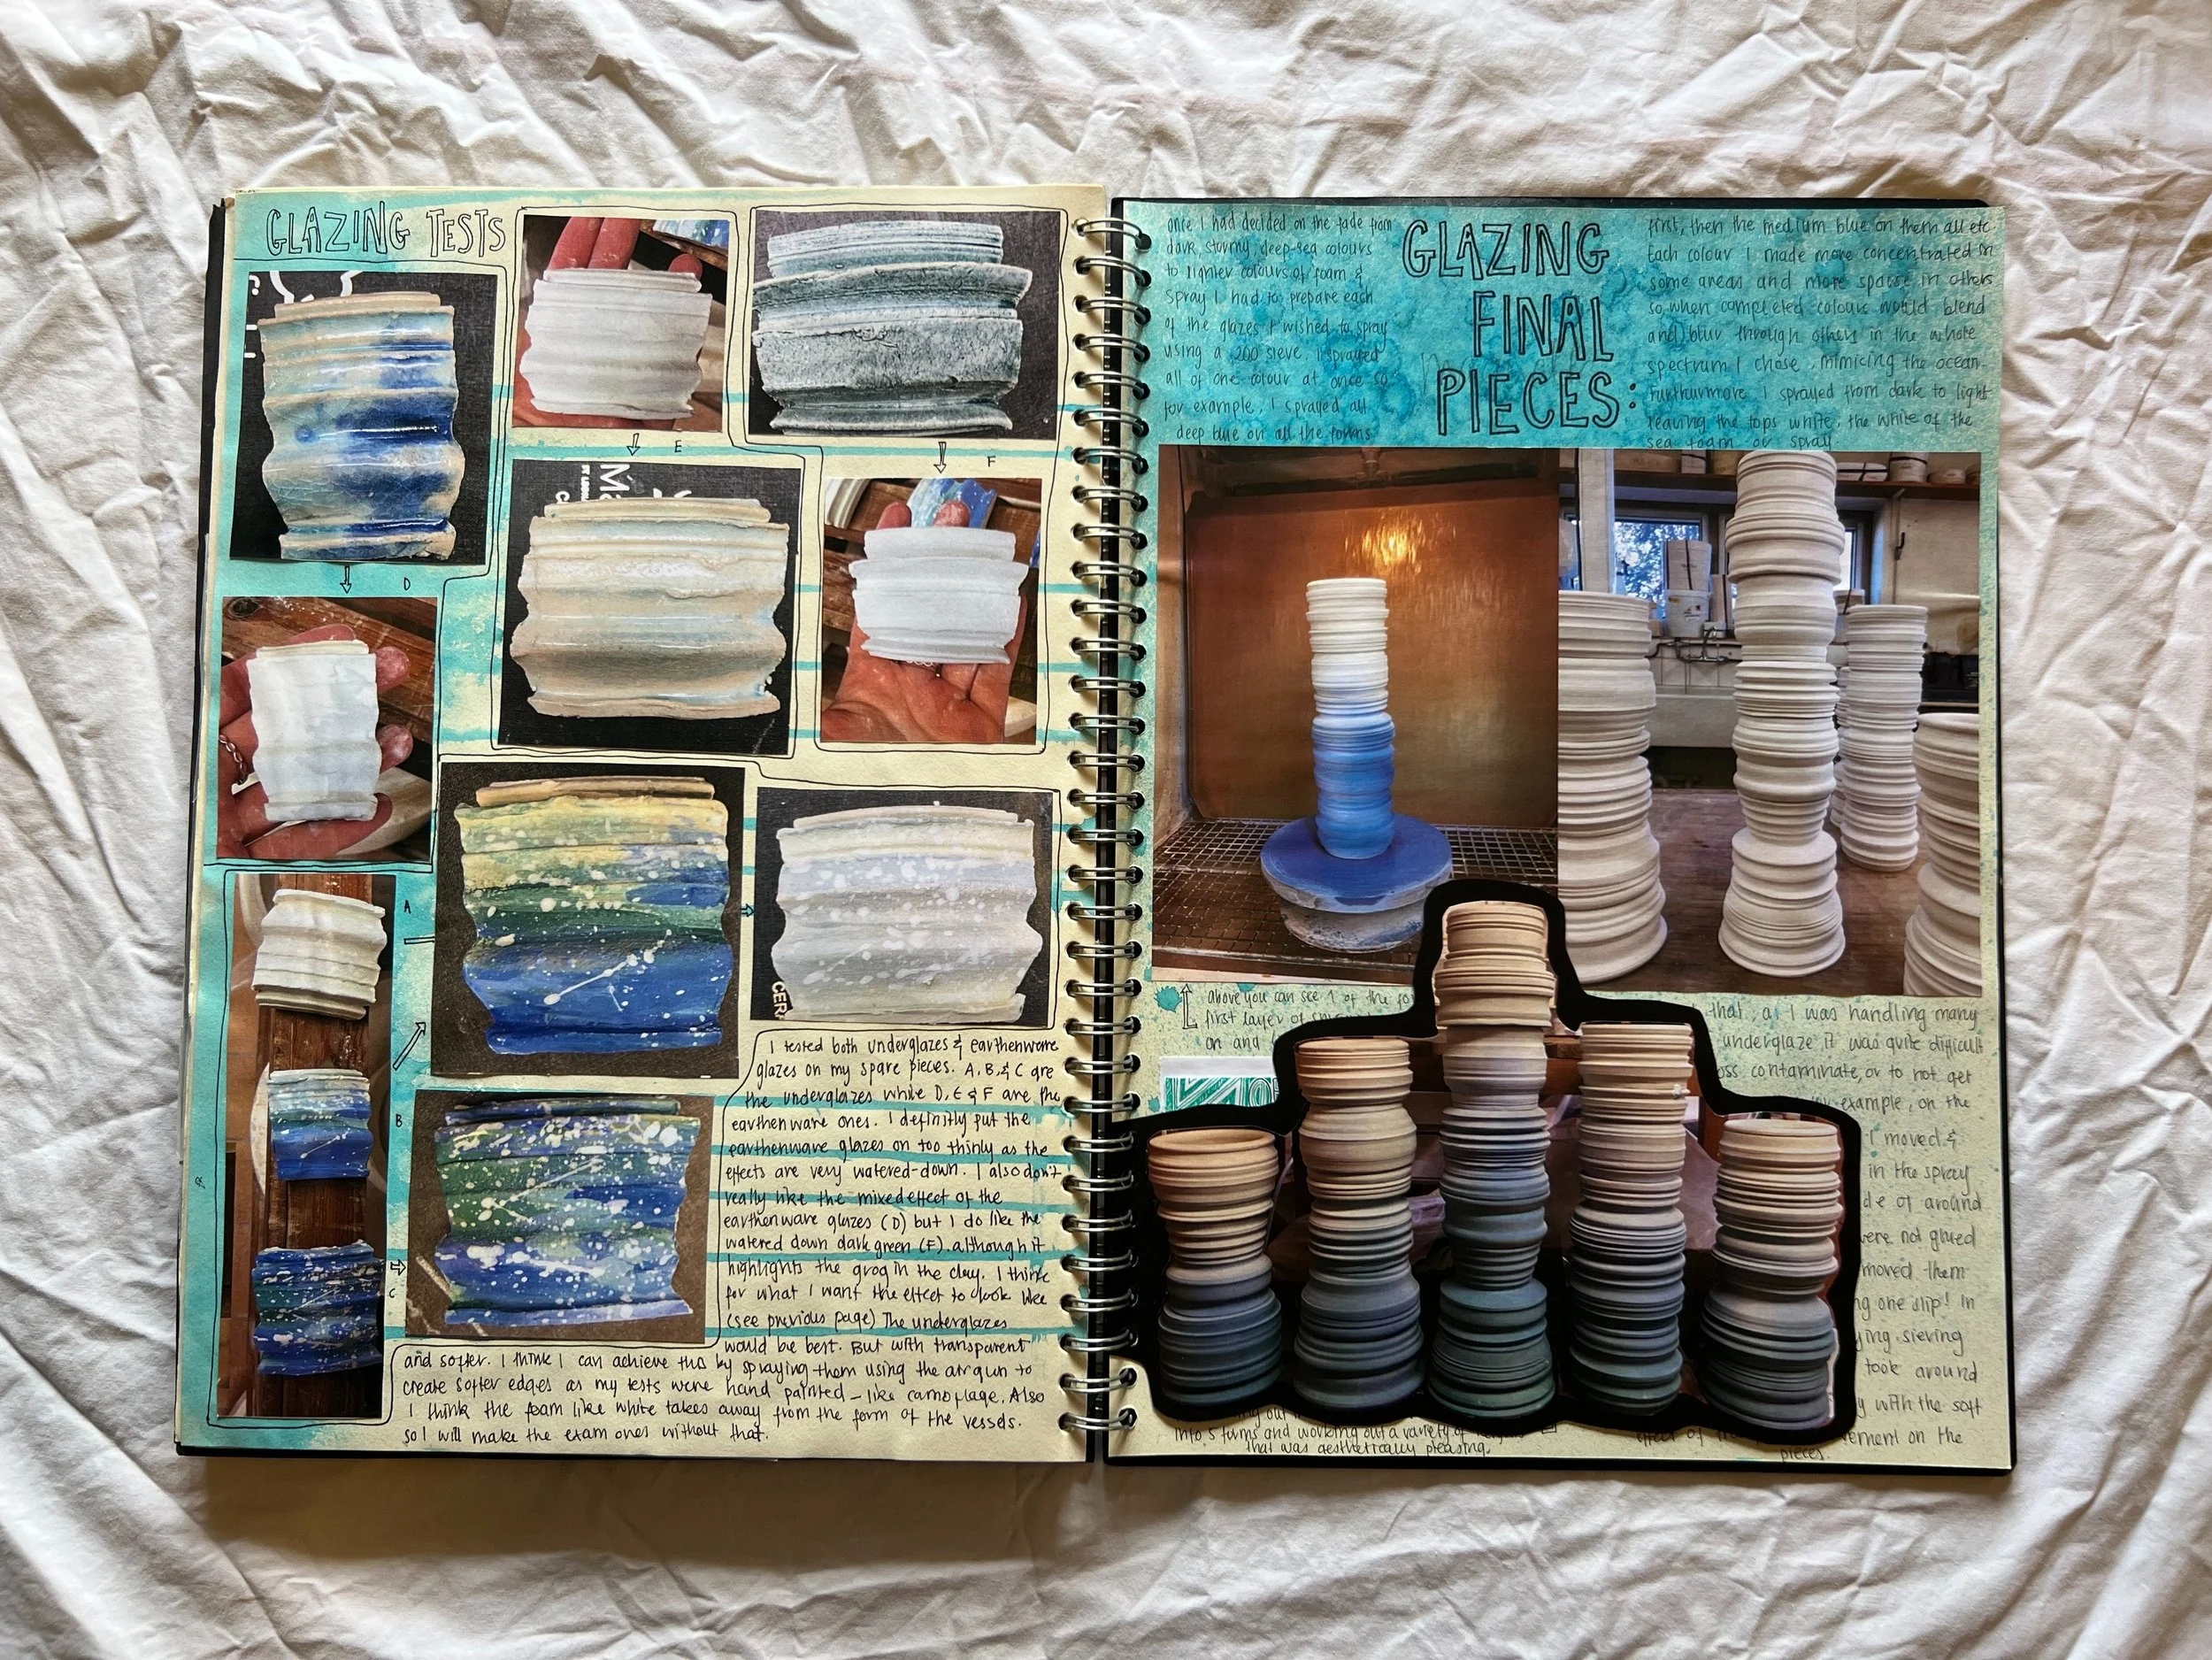 GLAZING TESTS
D
E
F
A
B
C
I tested both underglazes & earthenware
glazes on my spare pieces. A, B, & C are
the underglazes while D, E & F are the
earthenware ones. I definitly put the
earthenware glazes on too thinly as the
effects are very watered-down. I also don't
really like the mixed effect of the
earthenware glazes (D) but I do like the
watered down dark green (F). although it
highlights the grog in the clay. I think
for what I want the effect to look like
(see previous page) The underglazes
would be best. But with transparent
and softer. I think I can achieve this by spraying them using the airgun to
create softer edges as my tests were hand painted - like camoflage. Also
I think the foam like white takes away from the form of the vessels.
so I will make the exam ones without that.
GLAZING
FINAL
PIECES:
once I had decided on the fade from
dark, stormy, deep-sea colours
to lighter colours of foam &
spray I had to prepare each
of the glazes I wished to spray
using a 200 sieve. I sprayed
all of one colour at once so
for example, I sprayed all
deep blue on all the forms
first, then the medium blue on them all etc.
Each colour I made more concentrated in
some areas and more sparse in others
so when completed colours would blend
and blur through others in the whole
spectrum I chose, mimicing the ocean.
Furthurmore I sprayed from dark to light
leaving the tops white, the white of the
sea foam or spray.
above you can see 1 of the
first layer of
on and
into 5 forms and working out a variety of
that was aesthetically pleasing.
that, as I was handling many
underglaze it was quite difficult
contaminate, or to not get
example, on the
I moved &
in the spray
of around
were not glued
moved them
one slip! In
sieving
took around
with the soft
effect of
on the
pieces.